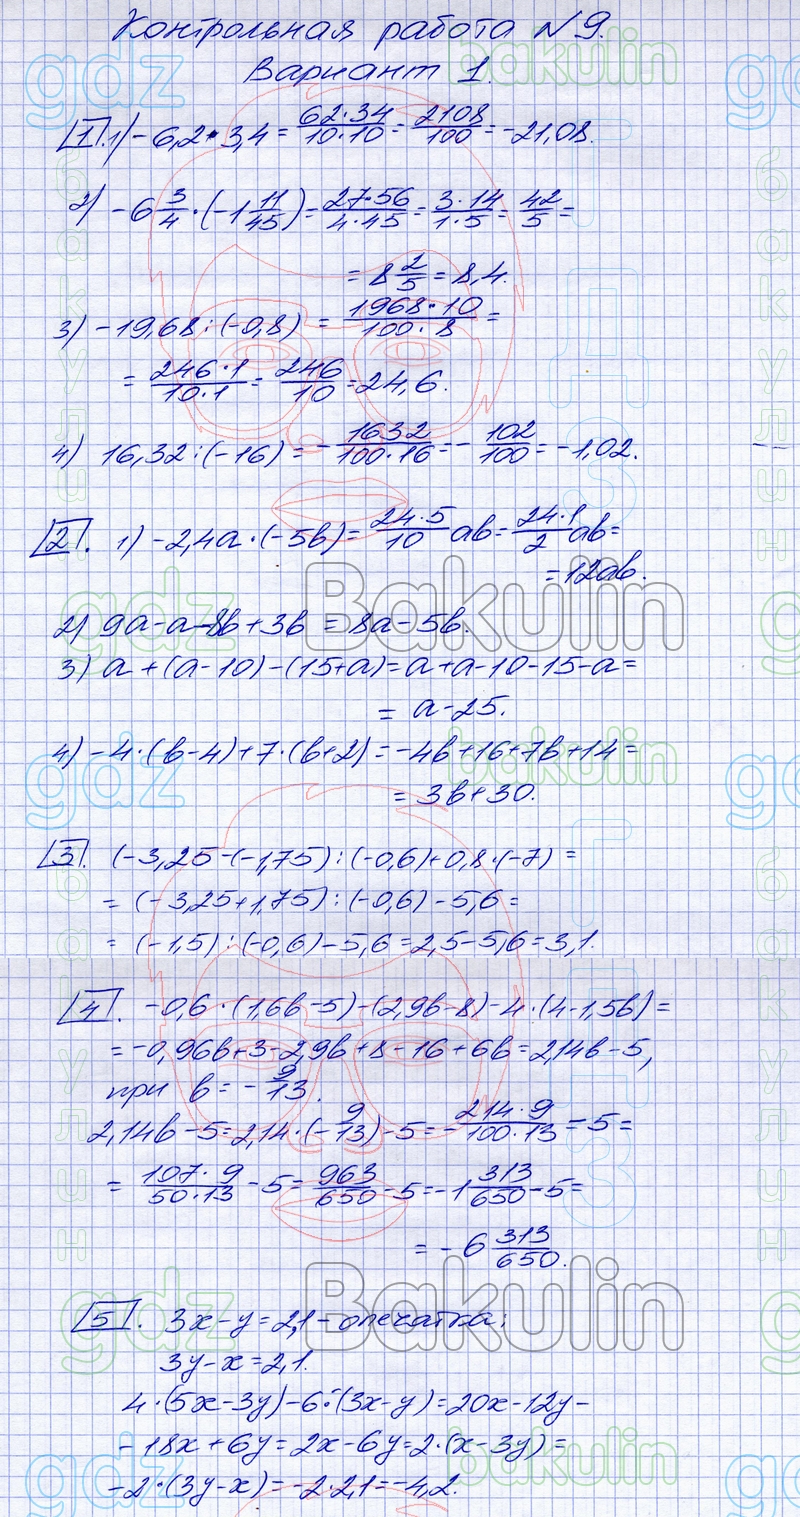 Контрольная работа №9.
Вариант 1.
1. 1) -6,2·3,4 = 62·34/10·10 = 2108/100 = -21,08.
2) -6 3/4·(-1 11/45) = 27·56/4·45 = 3·14/1·5 = 42/5 =
= 8 2/5 = 8,4.
3) -19,68:(-0,8) = 1968·10/100·8 =
= 246·1/10·1 = 246/10 = 24,6.
4) 16,32:(-16) = -1632/100·16 = -102/100 = -1,02.
2. 1) -2,4a·(-5b) = 24·5/10 ab = 24·1/2 ab =
= 12ab.
2) 9a-a-8b+3b = 8a-5b.
3) a+(a-10)-(15+a) = a+a-10-15-a =
= a-25.
4) -4·(b-4)+7·(b+2) = -4b+16+7b+14 =
= 3b+30.
3. (-3,25-(-1,75):(-0,6)+0,8·(-7) =
= (-3,25+1,75):(-0,6)-5,6 =
= (-1,5):(-0,6)-5,6 = 2,5-5,6 = 3,1.
4. -0,6·(1,6b-5)-(2,9b-8)-4·(4-1,5b) =
= -0,96b+3-2,9b+8-16+6b = 2,14b-5,
при b = -9/13.
2,14b-5 = 2,14·(-9/13)-5 = -214·9/100·13 -5 =
= 107·9/50·13 -5 = 963/650 -5 = -1 313/650 -5 =
= -6 313/650.
5. 3x-y = 2,1 - опечатка:
3y-x = 2,1.
4·(5x-3y)-6·(3x-y) = 20x-12y-
-18x+6y = 2x-6y = 2·(x-3y) =
-2·(3y-x) = -2·2,1 = -4,2.
gdz
bakulin
gdz
Bakulin
gdz
bakulin
gdz
Bakulin
gdz
bakulin